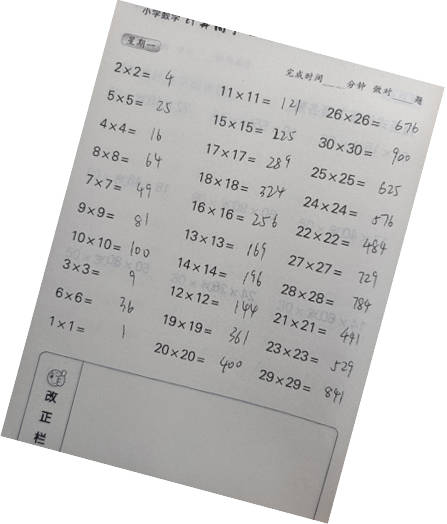 小学数学
星期一
完成时间___分钟 做对___题
2×2= 4
5×5= 25
4×4= 16
8×8= 64
7×7= 49
9×9= 81
10×10= 100
3×3= 9
6×6= 36
1×1= 1
11×11= 121
15×15= 225
17×17= 289
18×18= 324
16×16= 256
13×13= 169
14×14= 196
12×12= 144
19×19= 361
20×20= 400
26×26= 676
30×30= 900
25×25= 625
24×24= 576
22×22= 484
27×27= 729
28×28= 784
21×21= 441
23×23= 529
29×29= 841
改正栏